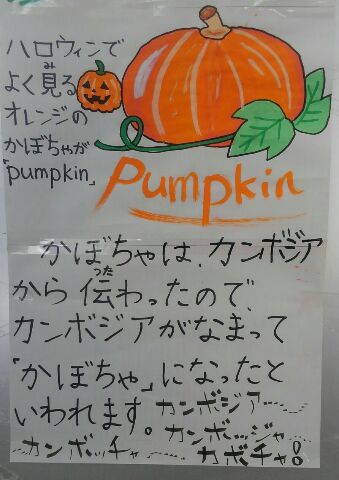 ハロウィンで
よく見る
み
オレンジの
かぼちゃが
「pumpkin」
Pumpkin
かぼちゃは、カンボジア
から伝わったので、
つた
カンボジアがなまって
「かぼちゃ」になったと
いわれます。カンボジア……
カンボッジャ……
カンボッチャ……カボチャ!